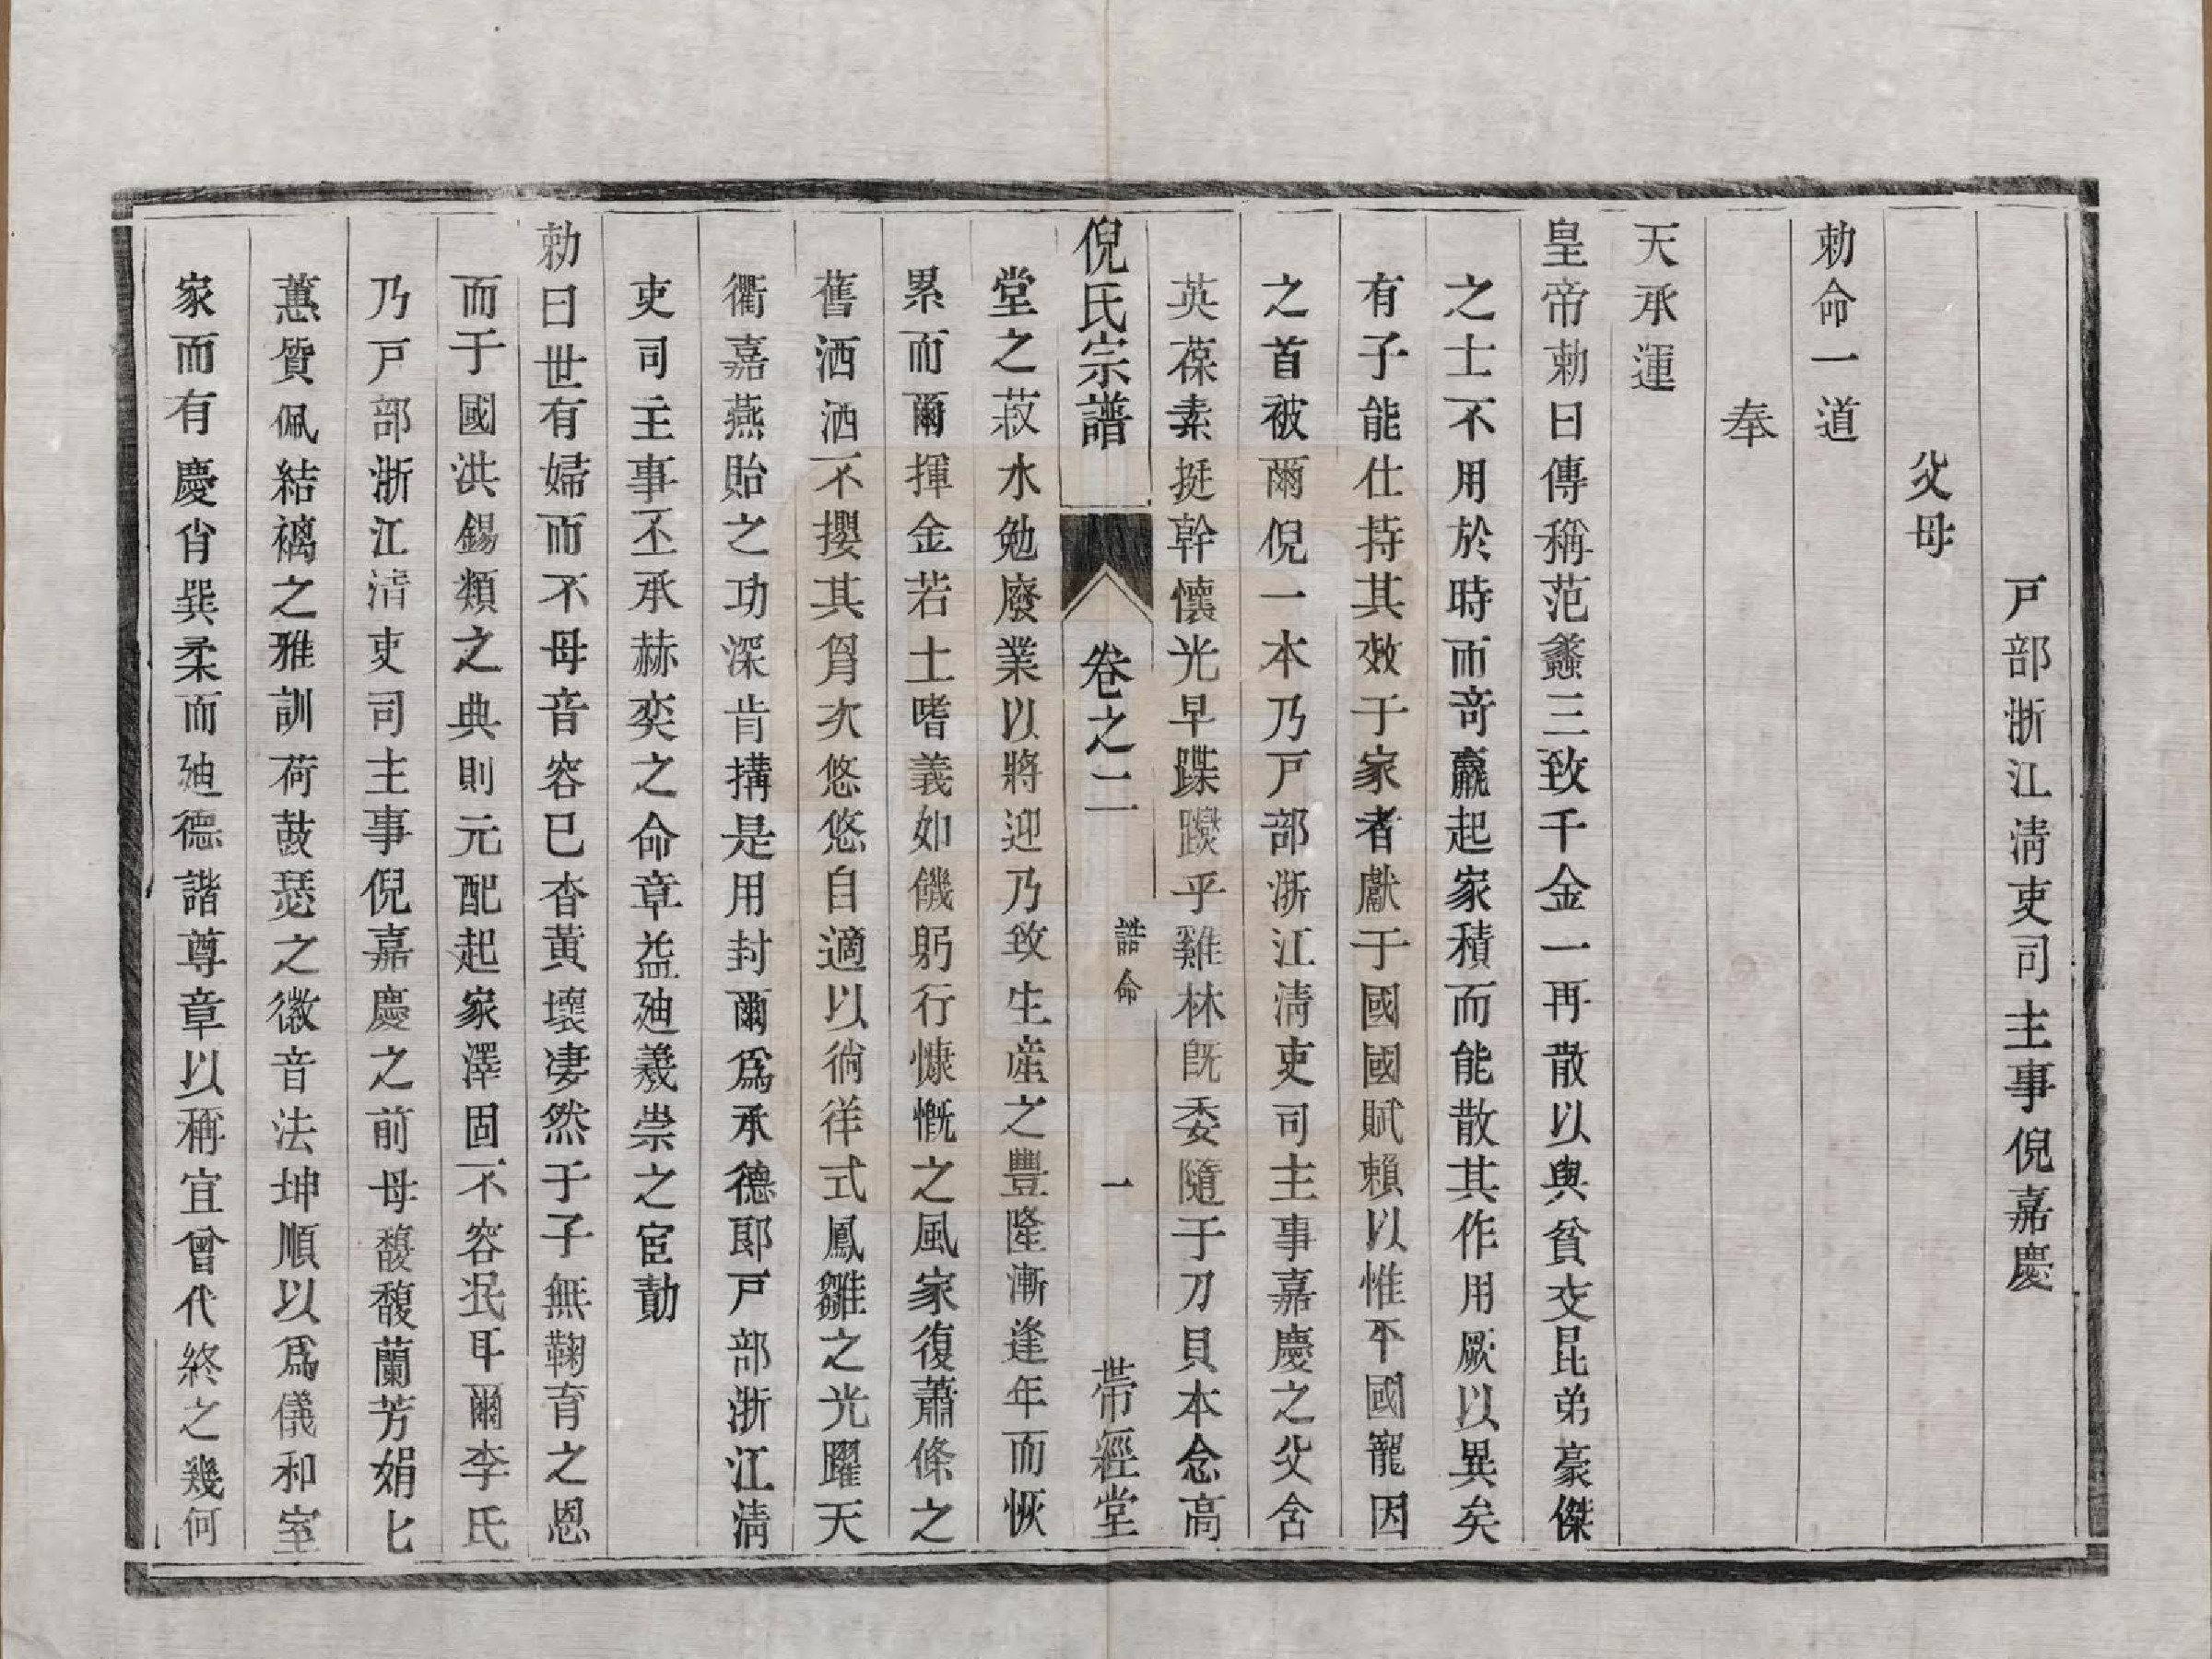 戸部浙江淸吏司主事倪嘉慶
父母
勅命一道
奉
天承運
皇帝勅曰傳稱范蠡三致千金一再散以與貧交昆弟豪傑
之士不用於時而竒贏起家積而能散其作用厥以異矣
有子能仕持其效于家者獻于國國賦賴以惟平國寵因
之首被爾倪一本乃戸部浙江淸吏司主事嘉慶之父含
英葆素挺幹懷光早蹀躞乎雞林旣委隨于刀貝本念高
倪氏宗譜
卷之二
誥命
一
帶經堂
堂之菽水勉廢業以將迎乃致生産之豐隆漸逢年而恢
累而爾揮金若土嗜義如饑躬行慷慨之風家復蕭條之
舊洒洒不攖其胷次悠悠自適以徜徉式鳳雛之光躍天
衢嘉燕貽之功深肯搆是用封爾爲承德郎戸部浙江淸
吏司主事丕承赫奕之命章益廸義崇之宦勣
勅曰世有婦而不母音容已杳黃壤凄然于子無鞠育之恩
而于國洪錫類之典則元配起家澤固不容泯耳爾李氏
乃戸部浙江清吏司主事倪嘉慶之前母馥馥蘭芳娟匕
蕙質佩結褵之雅訓荷鼓瑟之徽音法坤順以爲儀和室
家而有慶肖巽柔而廸德諧尊章以稱宜曾代終之幾何